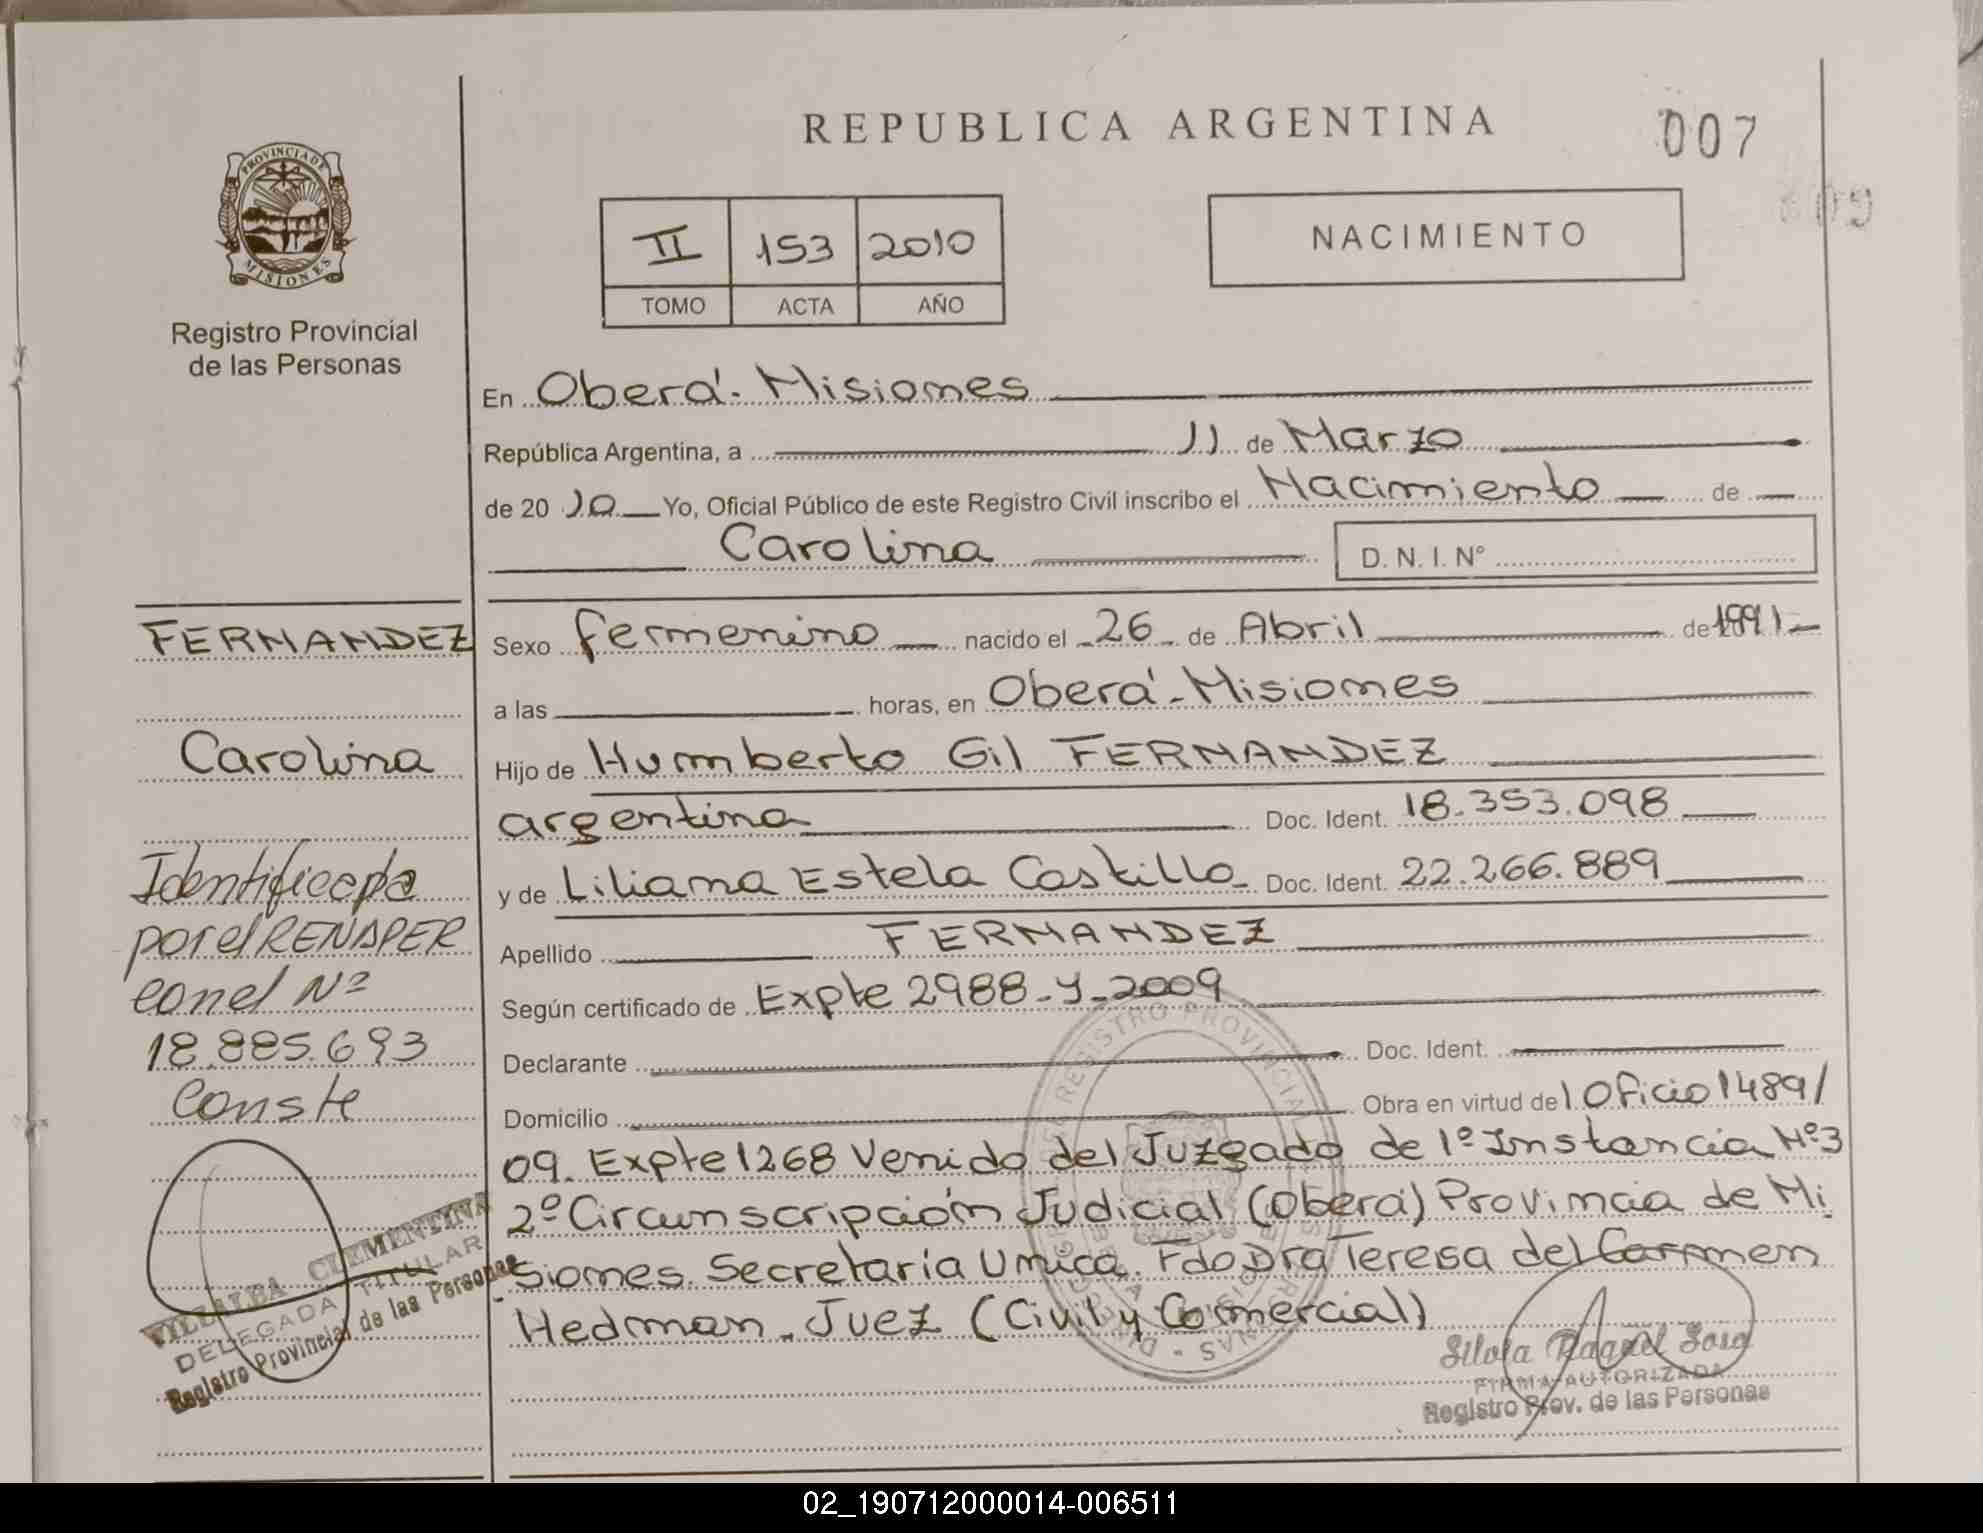 REPUBLICA ARGENTINA
007
009
PROVINCIA DE
MISIONES
Registro Provincial
de las Personas
II 153 2010
TOMO ACTA AÑO
NACIMIENTO
En Oberá - Misiones
República Argentina, a 11 de Marzo
de 20 10 Yo, Oficial Público de este Registro Civil inscribo el Nacimiento de
Carolina D. N. I. Nº
FERNANDEZ
Carolina
Identificada
por el RENAPER
con el Nº
18.885.693
Conste
VILLALBA CLEMENTINA
DELEGADA TITULAR
Registro Provincial de las Personas
Sexo femenino nacido el 26 de Abril de 1991
a las horas, en Oberá - Misiones
Hijo de Humberto Gil FERNANDEZ
argentina Doc. Ident. 18.353.098
y de Liliana Estela Castillo Doc. Ident. 22.266.889
Apellido FERNANDEZ
Según certificado de Expte 2988-Y-2009
Declarante Doc. Ident.
Domicilio Obra en virtud del Oficio 1489/
09. Expte 1268 Venido del Juzgado de 1º Instancia Nº3
2º Circunscripción Judicial (Oberá) Provincia de Mi
siones. Secretaría Unica. Fdo Dra Teresa del Carmen
Hedman - Juez (Civil y Comercial)
REGISTRO PROVINCIAL
Silvia Raquel Sosa
FIRMA AUTORIZADA
Registro Prov. de las Personas
02_190712000014-006511